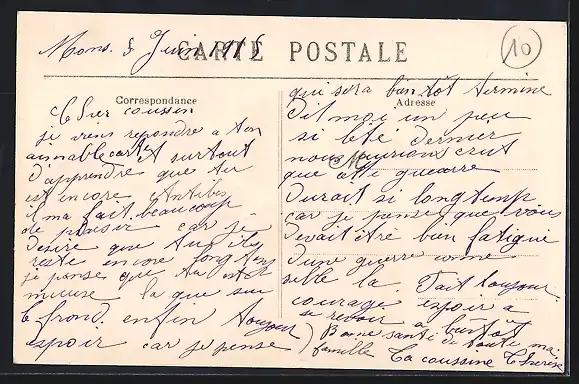 Mons 8 Juin 1915
CARTE POSTALE
10
Correspondance
Adresse
Cher coussin
je viens repondre a ton
aimable carte et surtout
d'apprendre que tu
est encore Antibes
il ma fait beaucoup
de plaisir car je
desire que tu il y
reste encore longtemp
je pense que tu est
mieuse la que sur
le frond. enfin toujour
espoir car je pense
qui sera bientôt termine
dit moi un peu
si l'eté dernier
nous aurions crut
que cete guerre
durait si longtemp
car je pense que vous
devait être bien fatigue
d'une guerre comme
sible la. Fait toujour
courage espoir a
se revoir a bientot
Bonne santé de toute ma
famille Ta coussine Therese